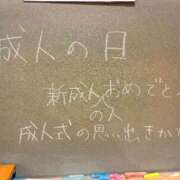 成人の日
新成人おめでと
の人
成人式の思い出きか